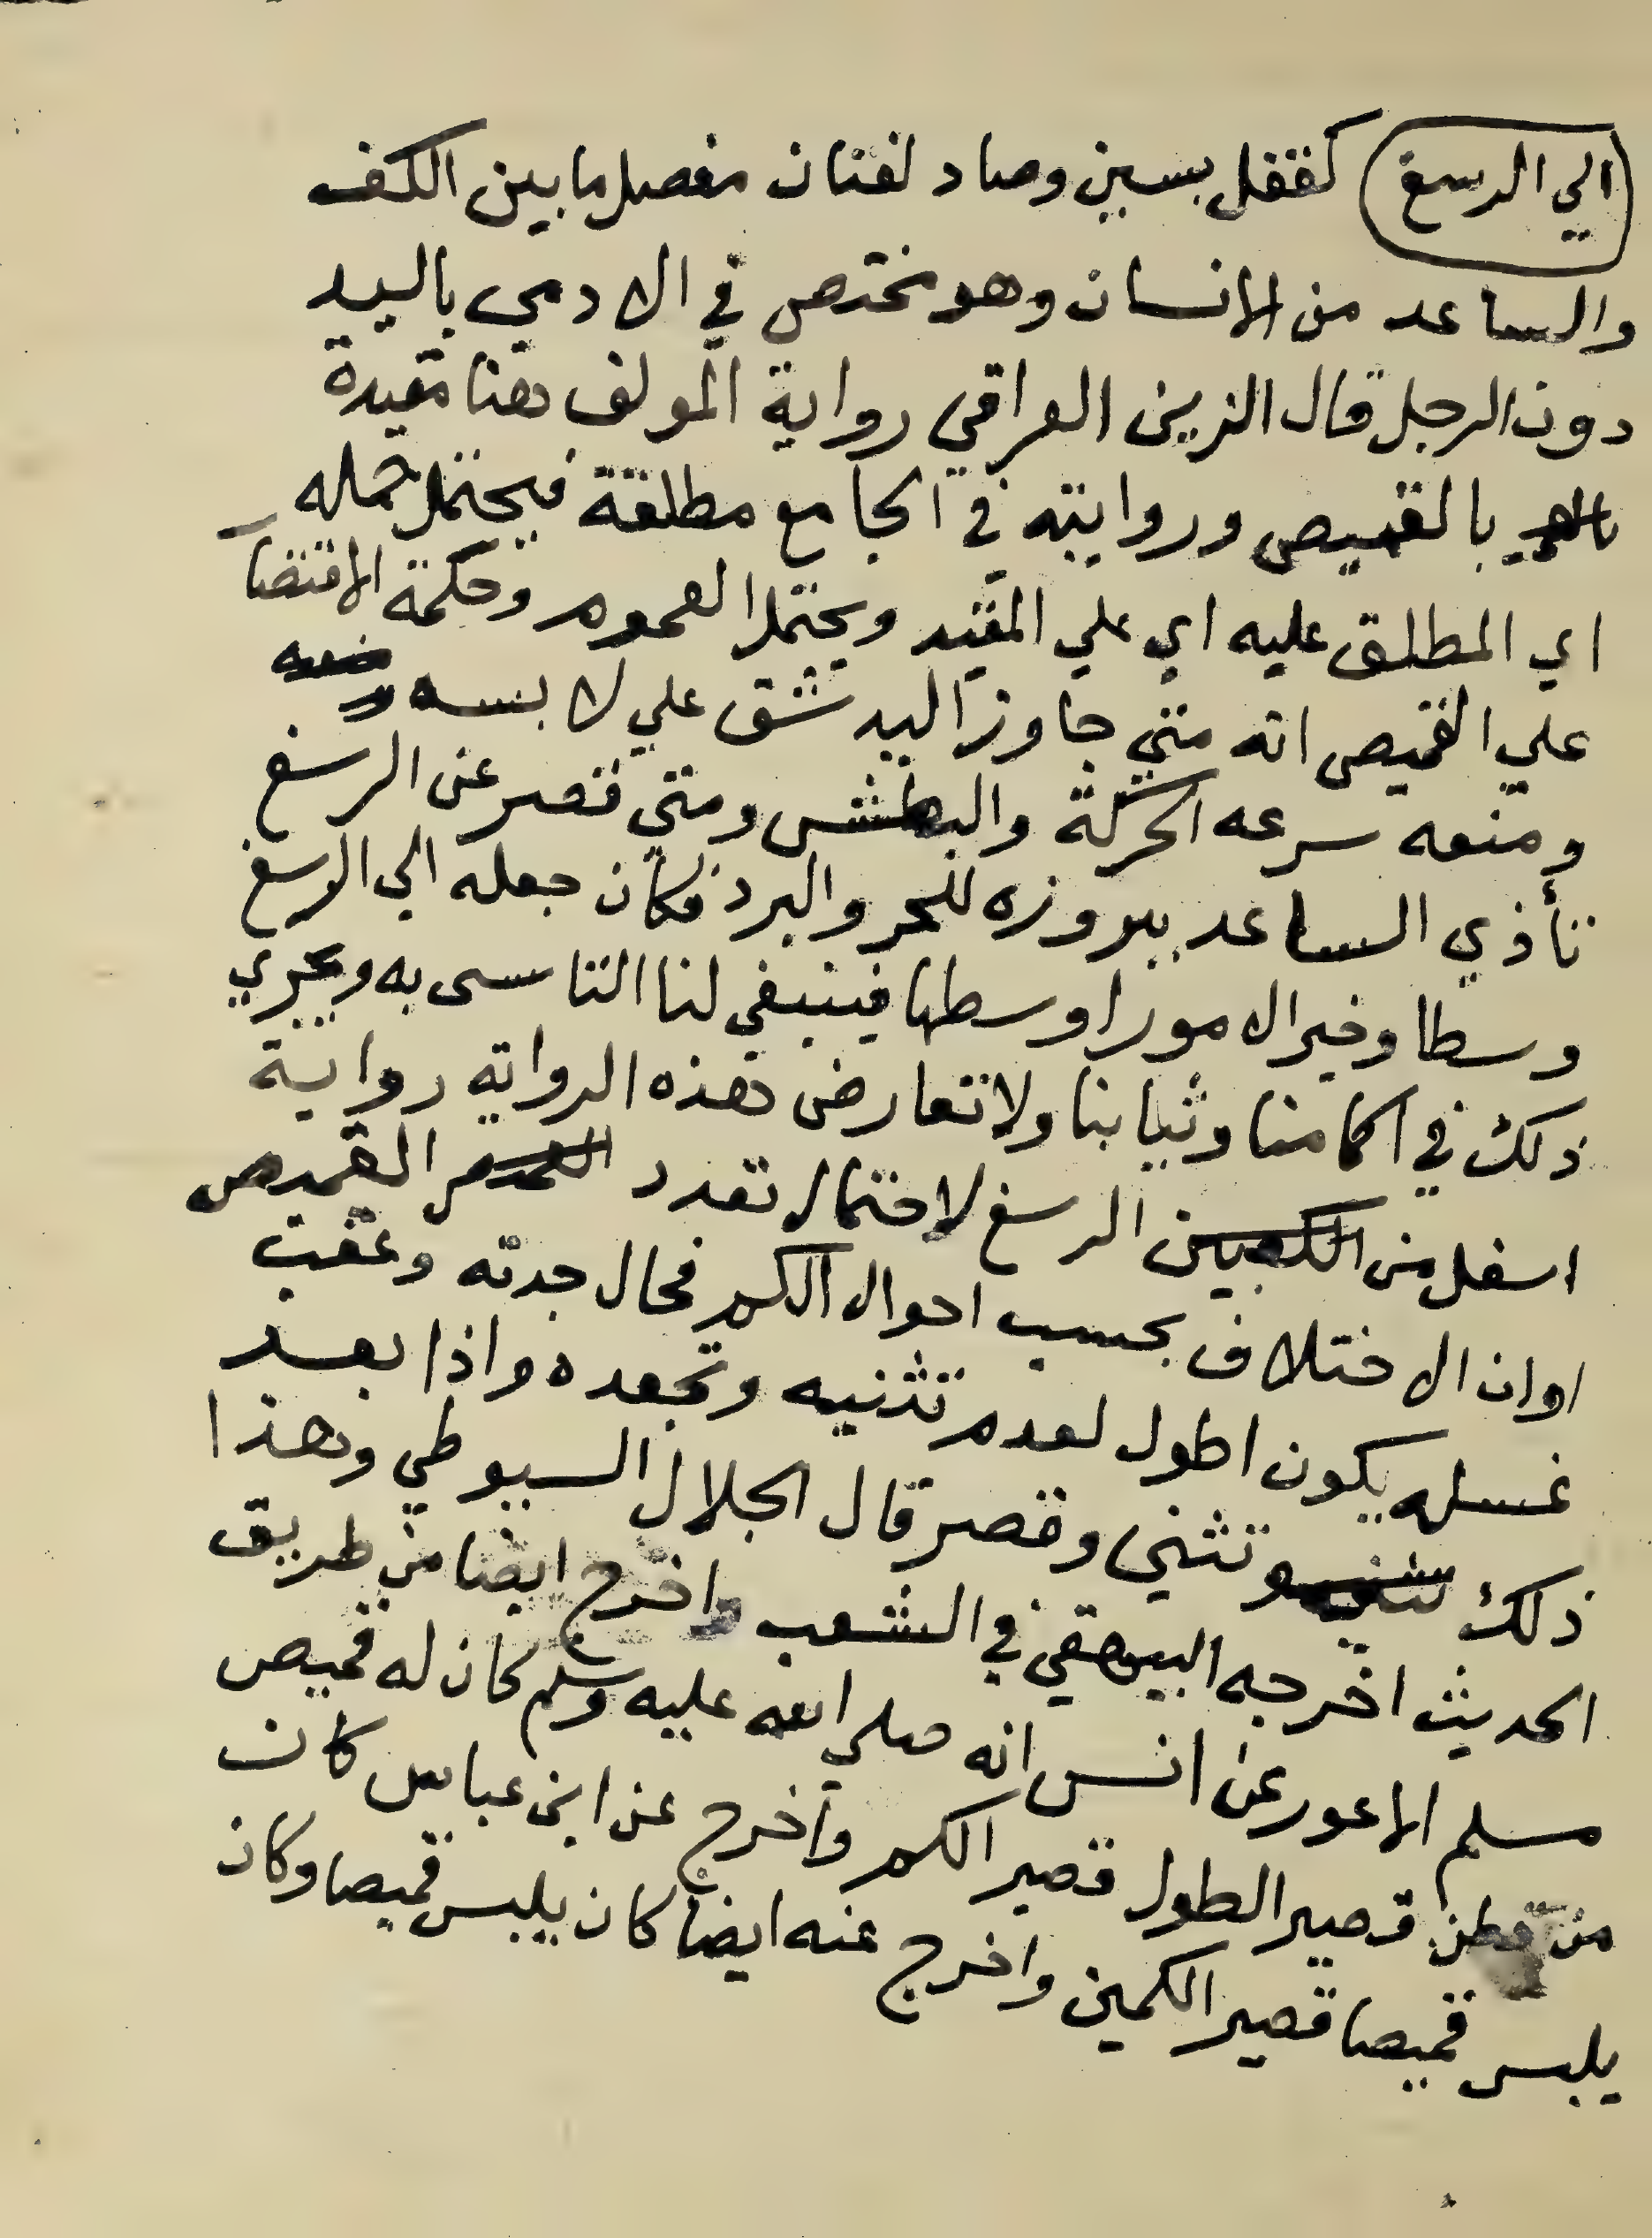 الي الرسغ كقفل بسين وصاد لغتان مفصل ما بين الكف
والساعد من الانسان وهو مختص في الادمي باليد
دون الرجل قال الزين العراقي رواية المولف هنا مقيدة
بالقميص وروايته في الجامع مطلقة فيحتمل حمله
اي المطلق عليه اي علي المقيد ويحتمل العموم وحكمة الاقتضا
علي القميص انه متي جاوز اليد شق علي لابسه
ومنعه سرعه الحركة والبطش ومتي قصر عن الرسغ
تأذي الساعد ببروزه للحر والبرد فكان جعله الي الرسغ
وسطا وخير الامور اوسطها فينبغي لنا التاسى به ويجري
ذلك في اكمامنا وثيابنا ولا تعارض هذه الرواية رواية
اسفل من الرسغ لاحتمال تعدد القميص
او ان الاختلاف بحسب احوال الكم فحال جدته وعقب
غسله يكون اطول لعدم تثنيه وتجعده واذا بعد
ذلك تثني وقصر قال الجلال السيوطي وهذا
الحديث اخرجه البيهقي في الشعب واخرج ايضا من طريق
مسلم الاعور عن انس انه صلي الله عليه وسلم كان له قميص
من قطن قصير الطول قصير الكم واخرج عن ابن عباس كان
يلبس قميصا قصير الكمين واخرج عنه ايضا كان يلبس قميصا وكان